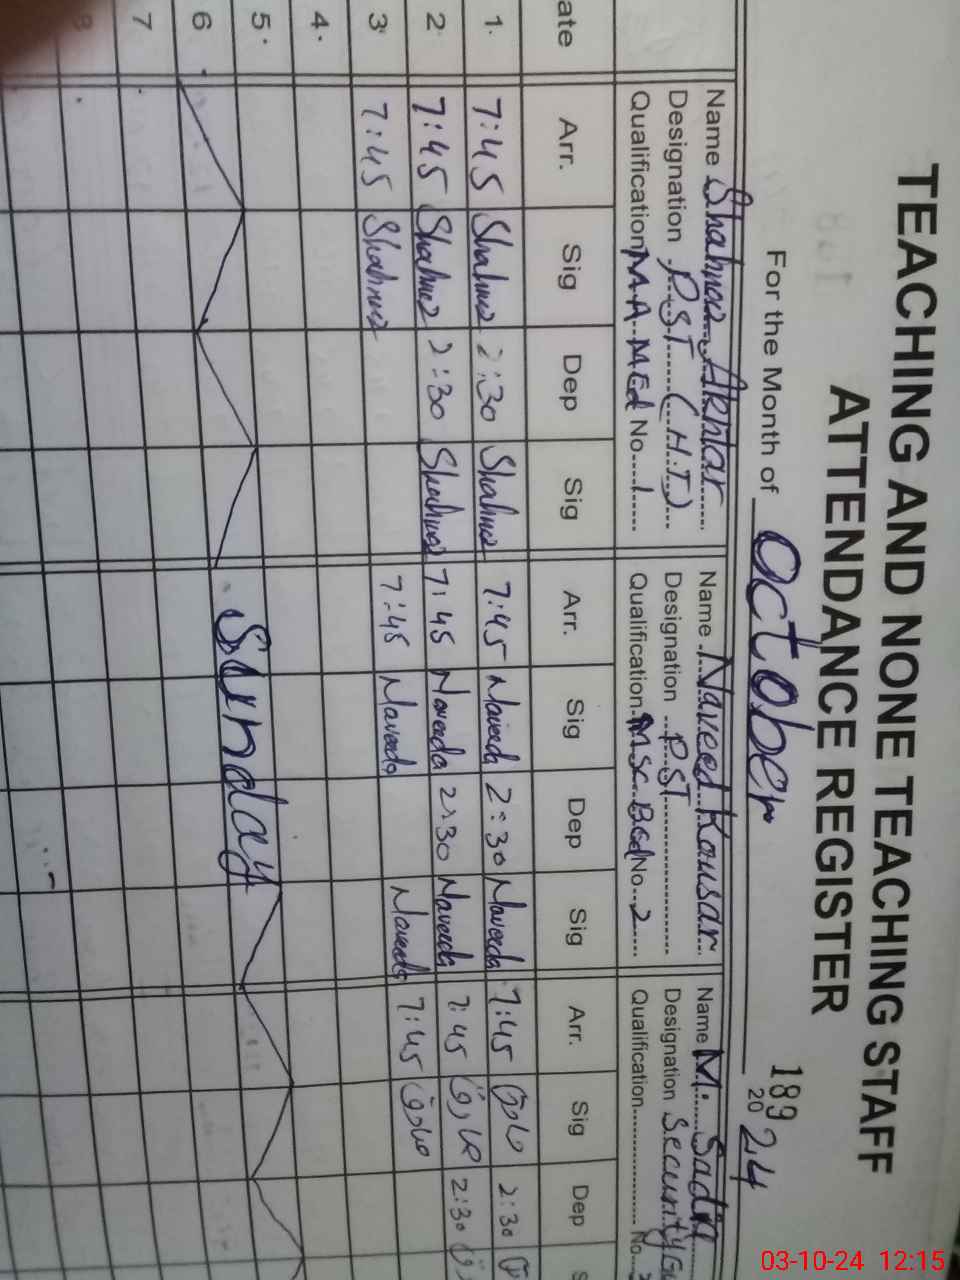 TEACHING AND NONE TEACHING STAFF
ATTENDANCE REGISTER
189
For the Month of October 2024
Name Shahnaz Akhtar Name Naveed Kausar Name M. Sadiq
Designation P.S.T (H.T) Designation PST Designation Security
Qualification M.A M.Ed No. 1 Qualification MSc. Bed No. 2 Qualification No.
ate Arr. Sig Dep Sig Arr. Sig Dep Sig Arr. Sig Dep S
1. 7:45 Shahnaz 2:30 Shahnaz 7:45 Naveeda 2:30 Naveeda 7:45 صادق 2:30
2 7:45 Shahnaz 2:30 Shahnaz 7:45 Naveeda 2:30 Naveeda 7:45 صادق 2:30
3 7:45 Shahnaz 7:45 Naveeda Naveeda 7:45 صادق
4.
5.
6 Sunday
7
8
03-10-24 12:15